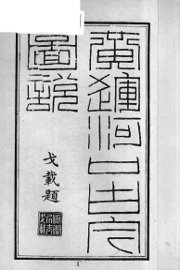 黃運河口古今
圖說
戈載題